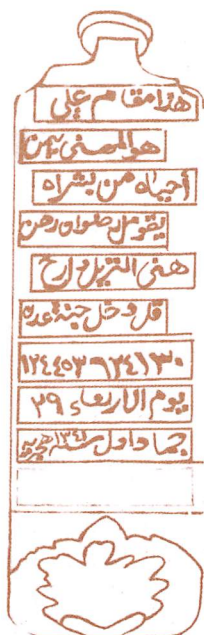 هذا مقام علي
هو المضني بمن
أحياه من بشراه
يقومل رضوان رهن
هنى النزيل وارخ
قل دخل جنة عدن
يوم الاربعاء ٢٩
جماد اول سنة ١٣٤١ هجريه